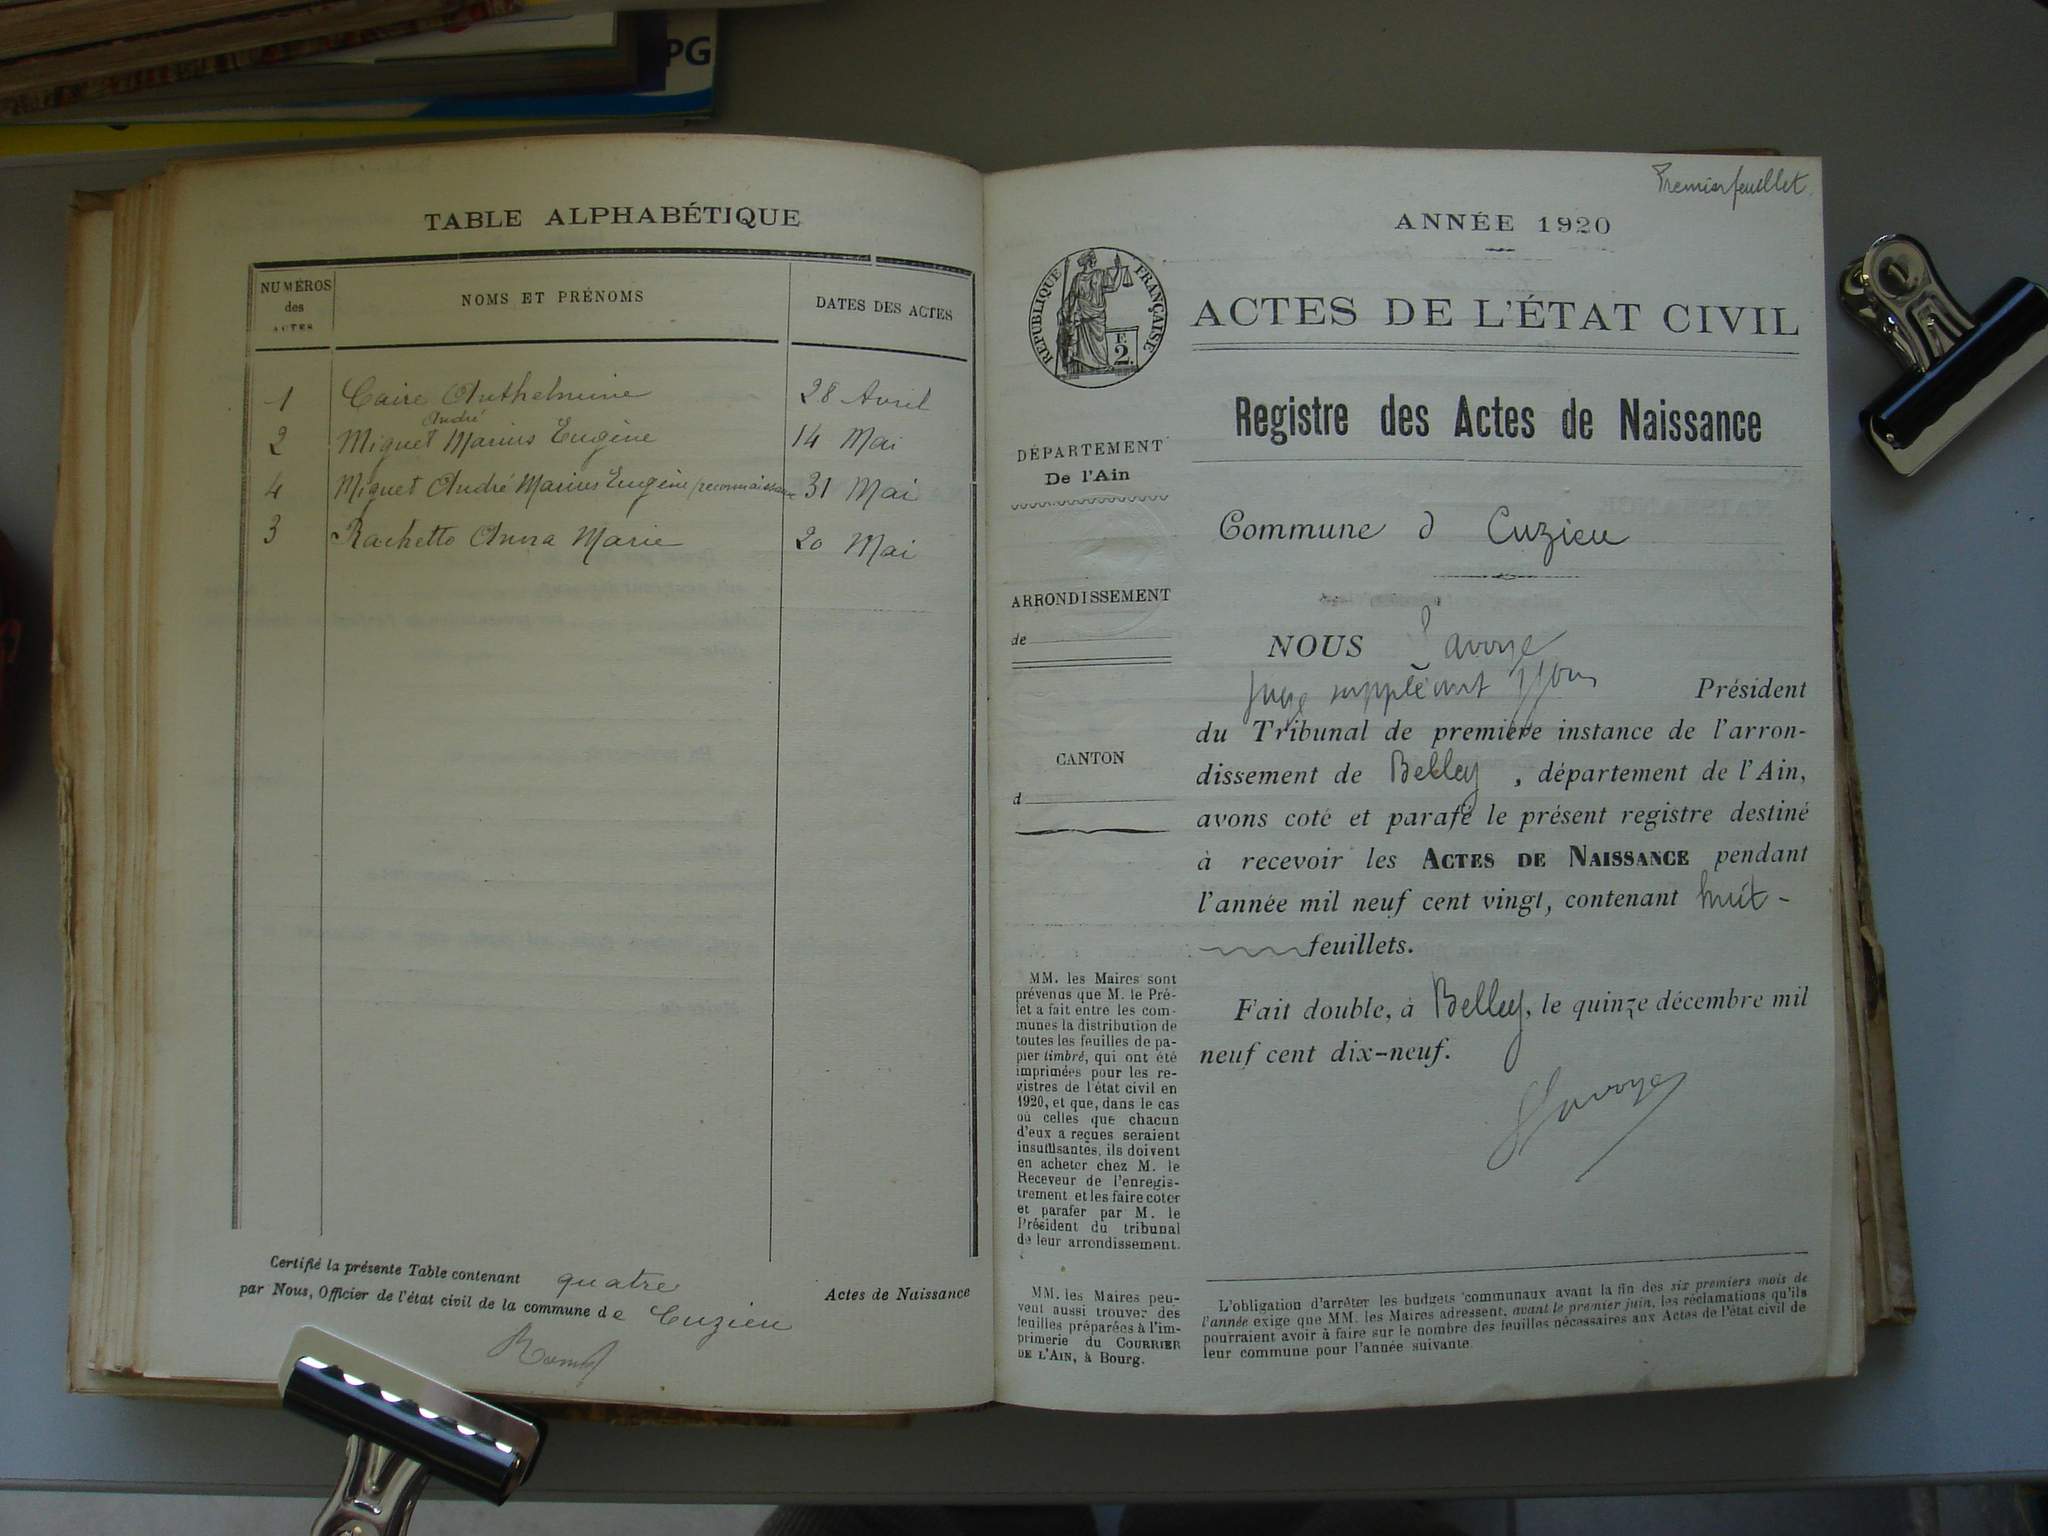 PG
TABLE ALPHABÉTIQUE
NUMÉROS des ACTES
NOMS ET PRÉNOMS
DATES DES ACTES
1 Caire Anthelmine 28 Avril
André
2 Miguet Marius Eugène 14 Mai
4 Miguet André Marius Eugène (reconnaissance 31 Mai
3 Rachetto Anna Marie 20 Mai
Certifié la présente Table contenant quatre Actes de Naissance
par Nous, Officier de l'état civil de la commune de Cuzieu
Premier feuillet
ANNÉE 1920
RÉPUBLIQUE FRANÇAISE
F.
2.
ACTES DE L'ÉTAT CIVIL
Registre des Actes de Naissance
DÉPARTEMENT
De l'Ain
Commune d Cuzieu
ARRONDISSEMENT
de
CANTON
d
NOUS
juge suppléant Président
du Tribunal de première instance de l'arron-
dissement de Belley, département de l'Ain,
avons coté et parafé le présent registre destiné
à recevoir les ACTES DE NAISSANCE pendant
l'année mil neuf cent vingt, contenant huit -
feuillets.
Fait double, à Belley, le quinze décembre mil
neuf cent dix-neuf.
MM. les Maires sont
prévenus que M. le Pré-
fet a fait entre les com-
munes la distribution de
toutes les feuilles de pa-
pier timbré, qui ont été
imprimées pour les re-
gistres de l'état civil en
1920, et que, dans le cas
où celles que chacun
d'eux a reçues seraient
insuffisantes, ils doivent
en acheter chez M. le
Receveur de l'enregis-
trement et les faire coter
et parafer par M. le
Président du tribunal
de leur arrondissement.
MM. les Maires peu-
vent aussi trouver des
feuilles préparées à l'im-
primerie du COURRIER
DE L'AIN, à Bourg.
L'obligation d'arrêter les budgets communaux avant la fin des six premiers mois de
l'année exige que MM. les Maires adressent, avant le premier juin, les réclamations qu'ils
pourraient avoir à faire sur le nombre des feuilles nécessaires aux Actes de l'état civil de
leur commune pour l'année suivante.